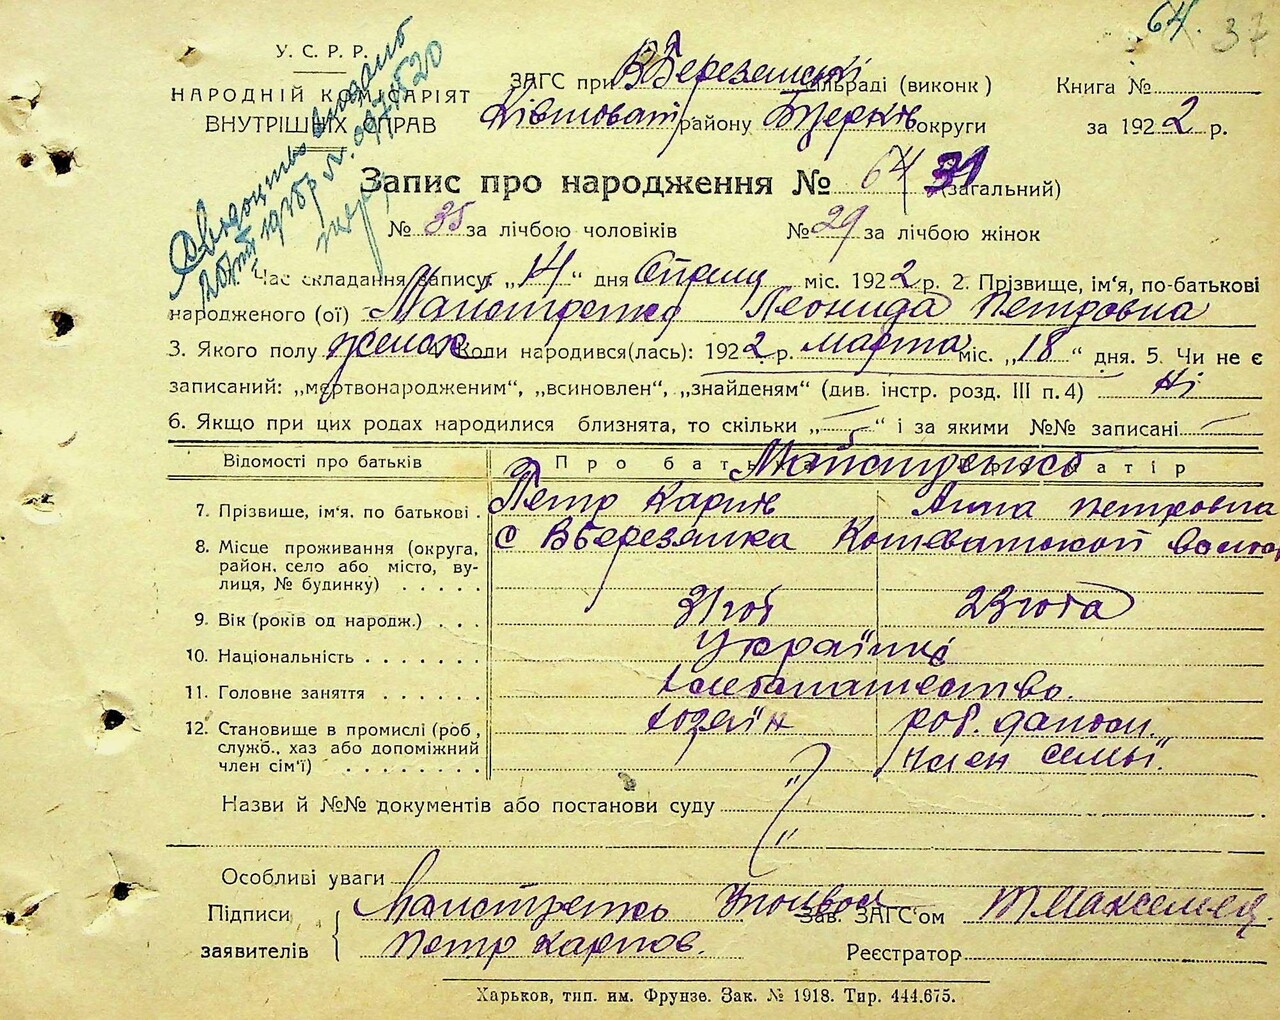 64. 37
У. С. Р. Р.
НАРОДНІЙ КОМІСАРІЯТ
ВНУТРІШНІХ СПРАВ
ЗАГС при ВБерезянські сільраді (виконк)
району БЦерків округи
Книга №
за 1922 р.
Запис про народження № 64 31 (загальний)
№ 35 за лічбою чоловіків № 29 за лічбою жінок
Час складання запису: „14" дня міс. 1922 р. 2. Прізвище, ім'я, по-батькові
народженого (ої) Майстренко Леонида Петровна
3. Якого полу женск 4. Коли народився(лась): 1922 р. марта міс. „18" дня. 5. Чи не є
записаний: „мертвонародженим", „всиновлен", „знайденям" (див. інстр. розд. III п. 4) Ні
6. Якщо при цих родах народилися близнята, то скільки „—" і за якими №№ записані —
Відомості про батьків
Про батька Майстренко матір
7. Прізвище, ім'я, по батькові Петр Карпів Анна Петровна
8. Місце проживання (округа, район, село або місто, вулиця, № будинку) с ВБерезянка Кошеватской волос
9. Вік (років од народж.) 31 год 23 года
10. Національність Українці
11. Головне заняття хлебопашество.
12. Становище в промислі (роб, служб., хаз або допоміжний член сім'ї) хозяїн роб. допом. член семьї"
Назви й №№ документів або постанови суду
Особливі уваги
Підписи заявителів Майстренко
Петр Карпов.
Зав. ЗАГС'ом
Реєстратор
Харьков, тип. им. Фрунзе. Зак. № 1918. Тир. 444.675.